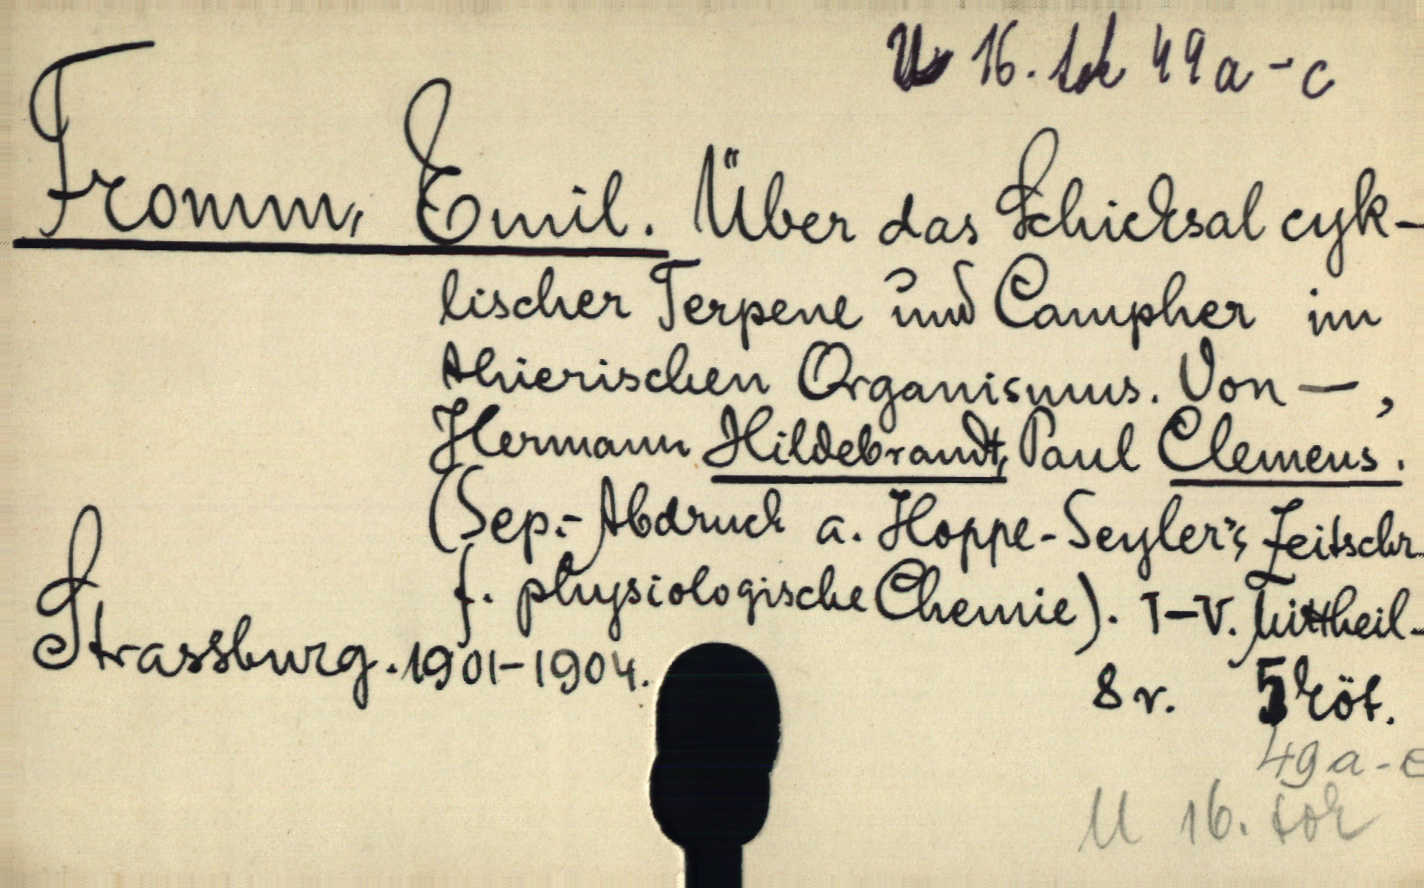 U 16. sok 49a-c
Fromm, Emil. Über das Schicksal cyk-
lischer Terpene und Campher im
thierischen Organismus. Von —,
Hermann Hildebrandt, Paul Clemens.
(Sep.-Abdruck a. Hoppe-Seyler's Zeitschr.
f. physiologische Chemie). I-V. Mittheil.
Strassburg. 1901-1904.
8 r. 5 köt.
49a-e
U 16. sok